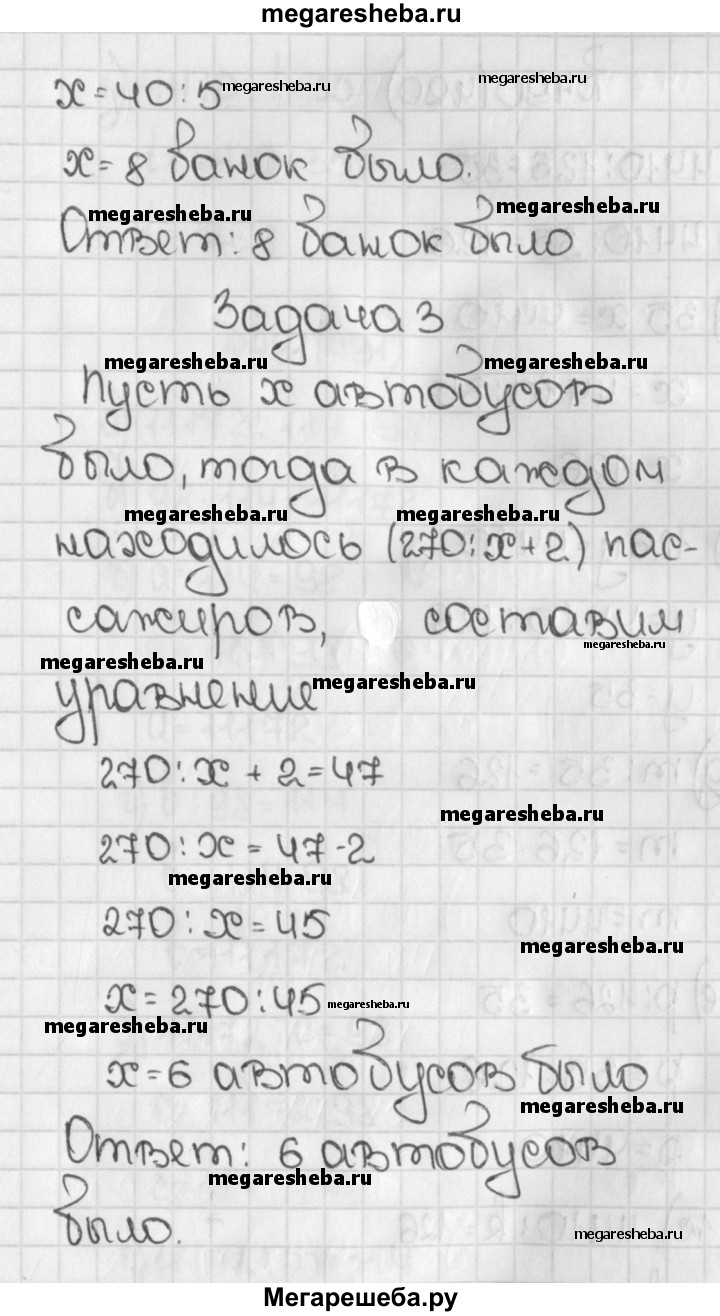 megaresheba.ru
x=40:5 megaresheba.ru megaresheba.ru
x=8 банок было.
megaresheba.ru megaresheba.ru
Ответ: 8 банок было
Задача 3
megaresheba.ru megaresheba.ru
Пусть x автобусов
было, тогда в каждом
megaresheba.ru megaresheba.ru
находилось (270:x+2) пас-
сажиров, составим
megaresheba.ru megaresheba.ru
уравнение megaresheba.ru
270:x+2=47
megaresheba.ru
270:x=47-2
megaresheba.ru
270:x=45
megaresheba.ru
x=270:45 megaresheba.ru
megaresheba.ru
x=6 автобусов было
megaresheba.ru
Ответ: 6 автобусов
megaresheba.ru
было.
megaresheba.ru
Мегарешеба.ру